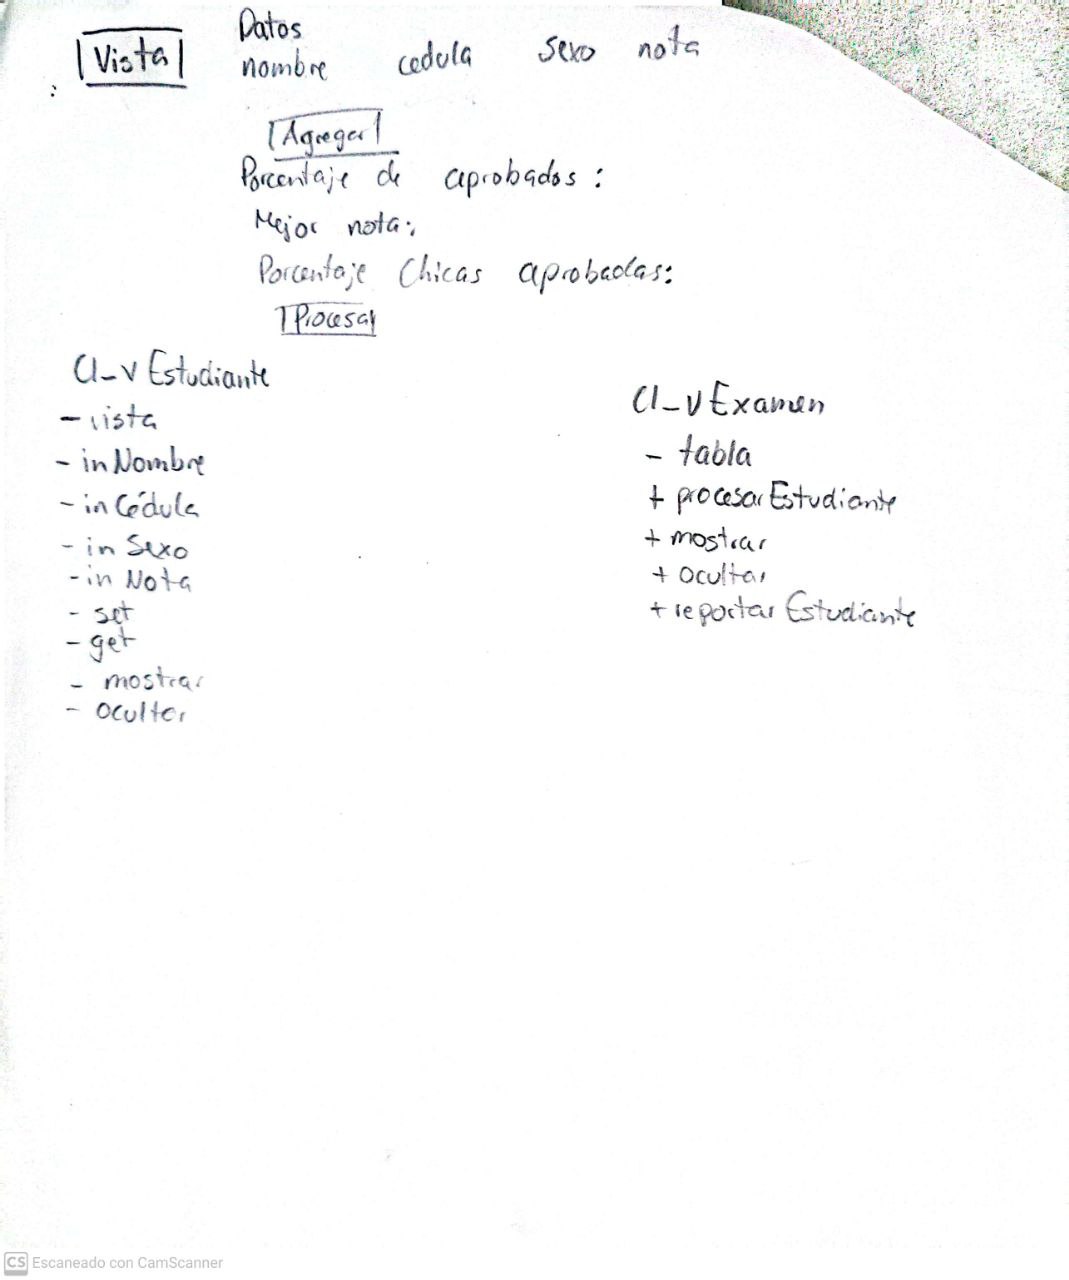 Vista
Datos
nombre cedula sexo nota
Agregar
Porcentaje de aprobados:
Mejor nota:
Porcentaje Chicas aprobadas:
Procesar
Cl_vEstudiante
- vista
- inNombre
- inCédula
- inSexo
- inNota
- set
- get
- mostrar
- ocultar
Cl_vExamen
- tabla
+ procesarEstudiante
+ mostrar
+ ocultar
+ reportarEstudiante
CS Escaneado con CamScanner